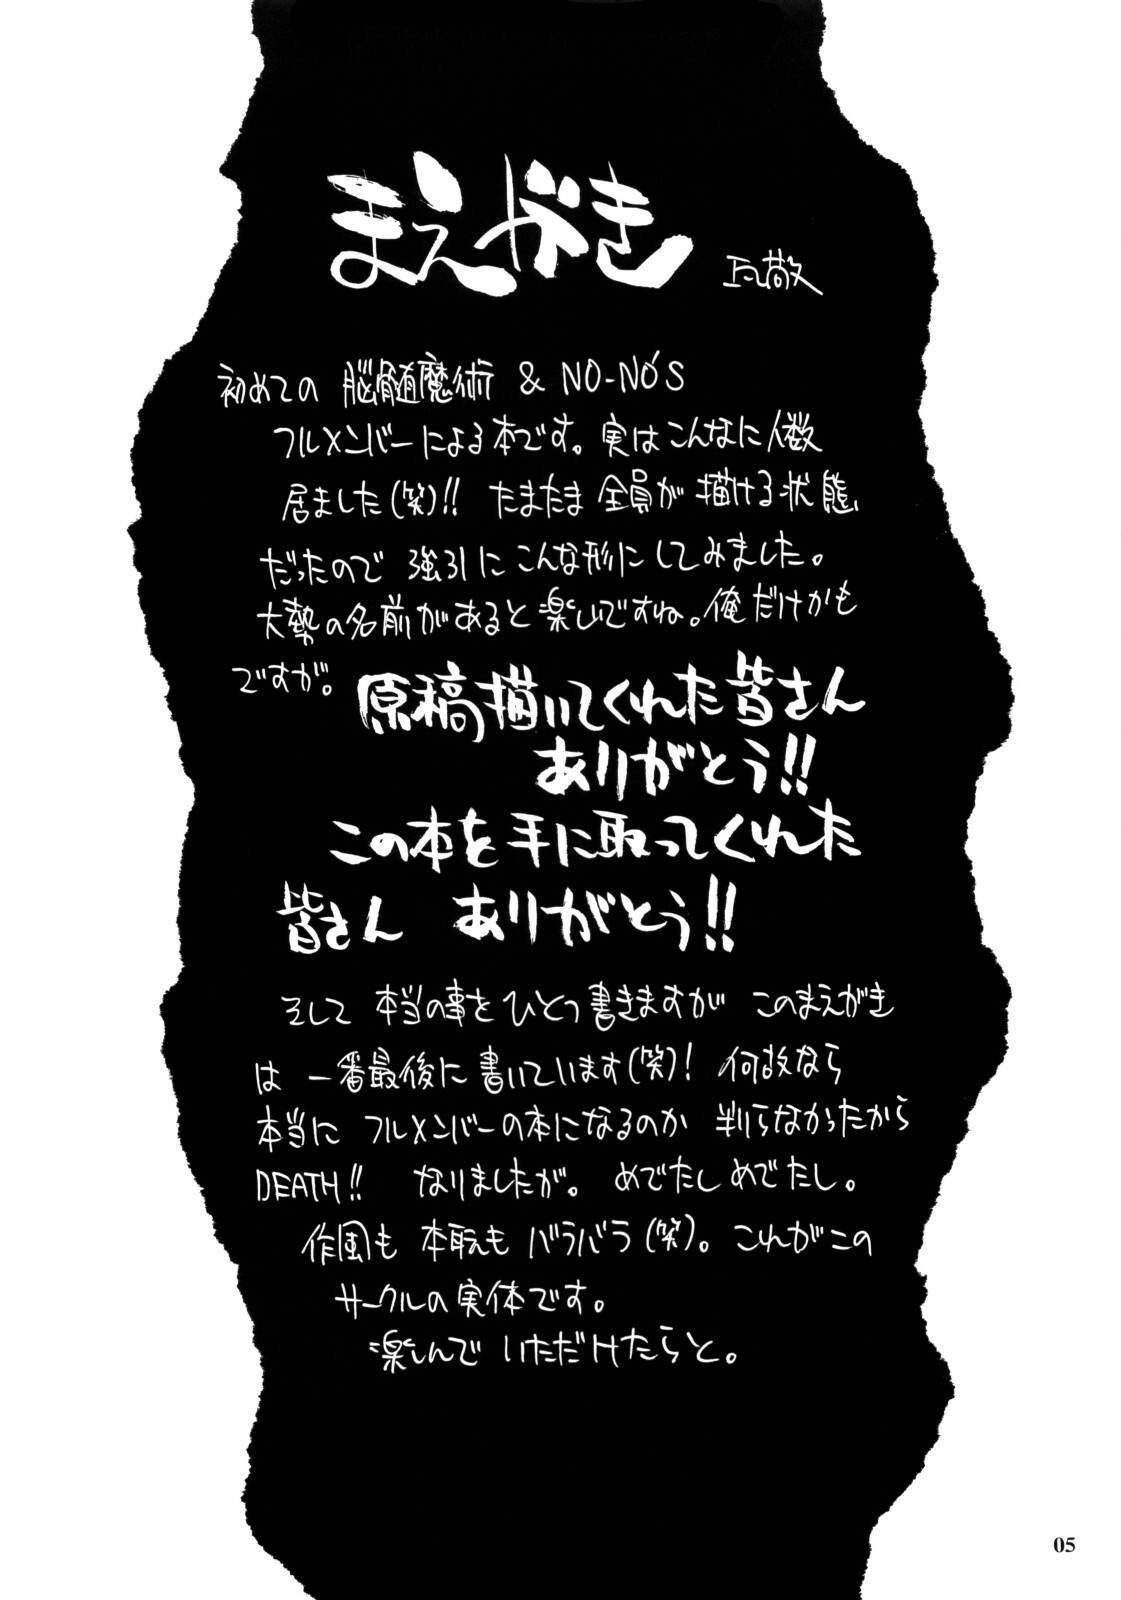 まえがき
瓦敬
初めての 脳髄魔術 & NO-NO'S
フルメンバーによる本です。実はこんなに人数
居ました(笑)!! たまたま 全員が 描ける状態
だったので 強引に こんな形に してみました。
大勢の名前があると楽しいですね。俺だけかも
ですが。
原稿描いてくれた皆さん
ありがとう!!
この本を手に取ってくれた
皆さん ありがとう!!
そして 本当の事を ひとつ 書きますが このまえがき
は 一番最後に 書いています(笑)! 何故なら
本当に フルメンバーの本になるのか 判らなかったから
DEATH!! なりましたが。 めでたし めでたし。
作風も 本職も バラバラ(笑)。これがこの
サークルの実体です。
楽しんで いただけたらと。
05